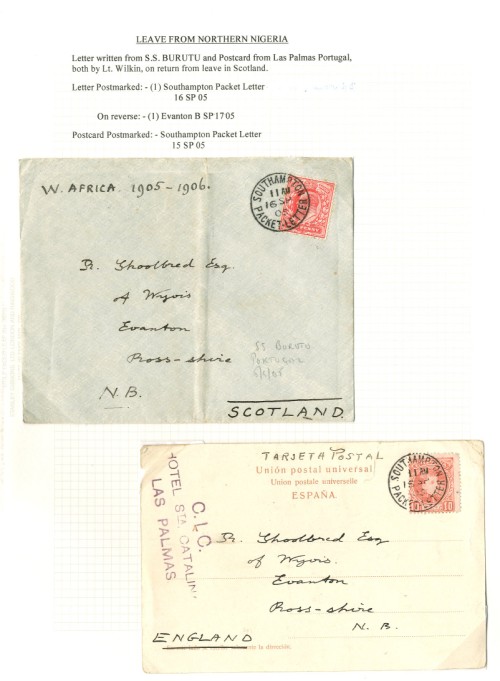 LEAVE FROM NORTHERN NIGERIA
Letter written from S.S. BURUTU and Postcard from Las Palmas Portugal,
both by Lt. Wilkin, on return from leave in Scotland.
Letter Postmarked: - (1) Southampton Packet Letter
16 SP 05
On reverse: - (1) Evanton B SP 17 05
Postcard Postmarked: - Southampton Packet Letter
15 SP 05
W. AFRICA. 1905-1906.
SOUTHAMPTON
11 AM
16 SP
05
PACKET-LETTER
R. Shoolbred Esq.
of Wyvis.
Evanton
Ross-shire
N.B.
SS BURUTU
SCOTLAND.
TARJETA POSTAL
Unión postal universal
Union postale universelle
ESPAÑA.
SOUTHAMPTON
11 AM
PACKET-LETTER
10
C. & C.
HOTEL STA CATALINA
LAS PALMAS
R. Shoolbred Esq
of Wyvis.
Evanton
Ross-shire
N.B.
ENGLAND
la dirección.